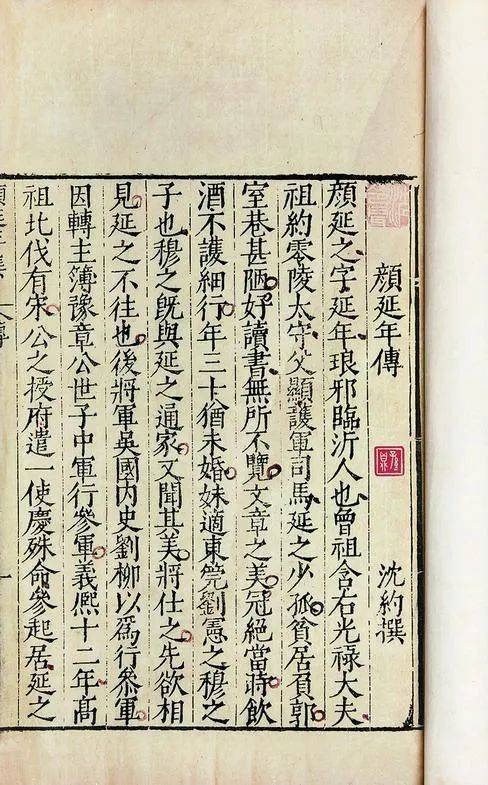 顔延年傳
沈約撰
顔延之字延年琅邪臨沂人也曾祖含右光祿大夫
祖約零陵太守父顯護軍司馬延之少孤貧居負郭
室巷甚陋好讀書無所不覽文章之美冠絕當時飲
酒不護細行年三十猶未婚妹適東筦劉憲之穆之
子也穆之旣與延之通家又聞其美將仕之先欲相
見延之不往也後將軍吳國內史劉柳以爲行參軍
因轉主簿豫章公世子中軍行參軍義熈十二年高
祖北伐有宋公之授府遣一使慶殊命參起居延之